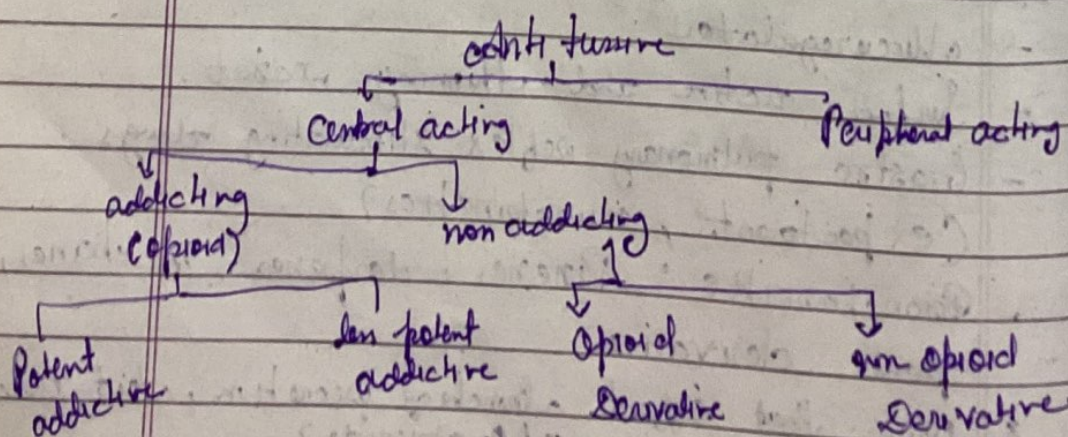 Anti tussive
Central acting
Peripheral acting
addicting
(opioid)
non addicting
Potent
addictive
less potent
addictive
Opioid
Derivative
non opioid
Derivative